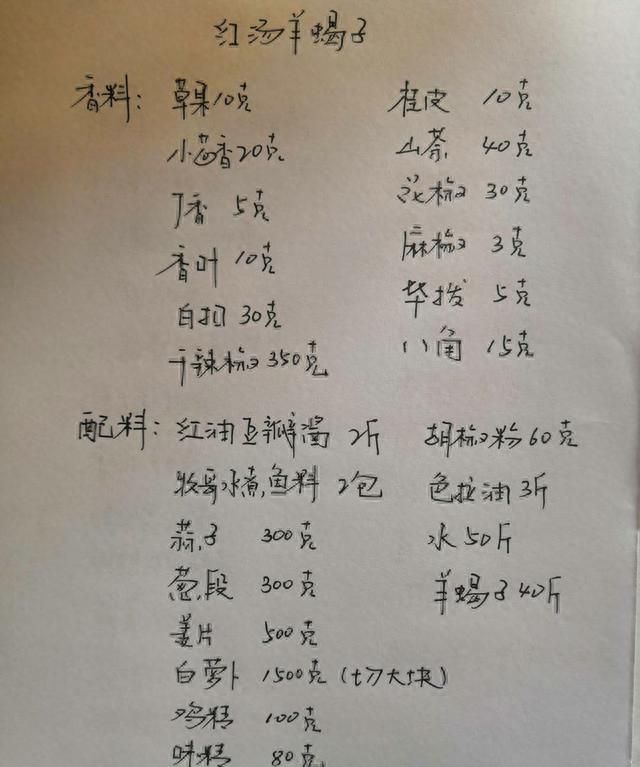 红汤羊蝎子
香料: 草果10克 桂皮 10克
小茴香20克 山奈 40克
丁香 5克 花椒 30克
香叶 10克 麻椒 3克
白扣 30克 毕拨 5克
干辣椒 350克 八角 15克
配料: 红油豆瓣酱 2斤 胡椒粉60克
牧哥水煮鱼料 2包 色拉油3斤
蒜子 300克 水50斤
葱段 300克 羊蝎子40斤
姜片 500克
白萝卜 1500克(切大块)
鸡精 100克
味精 80克